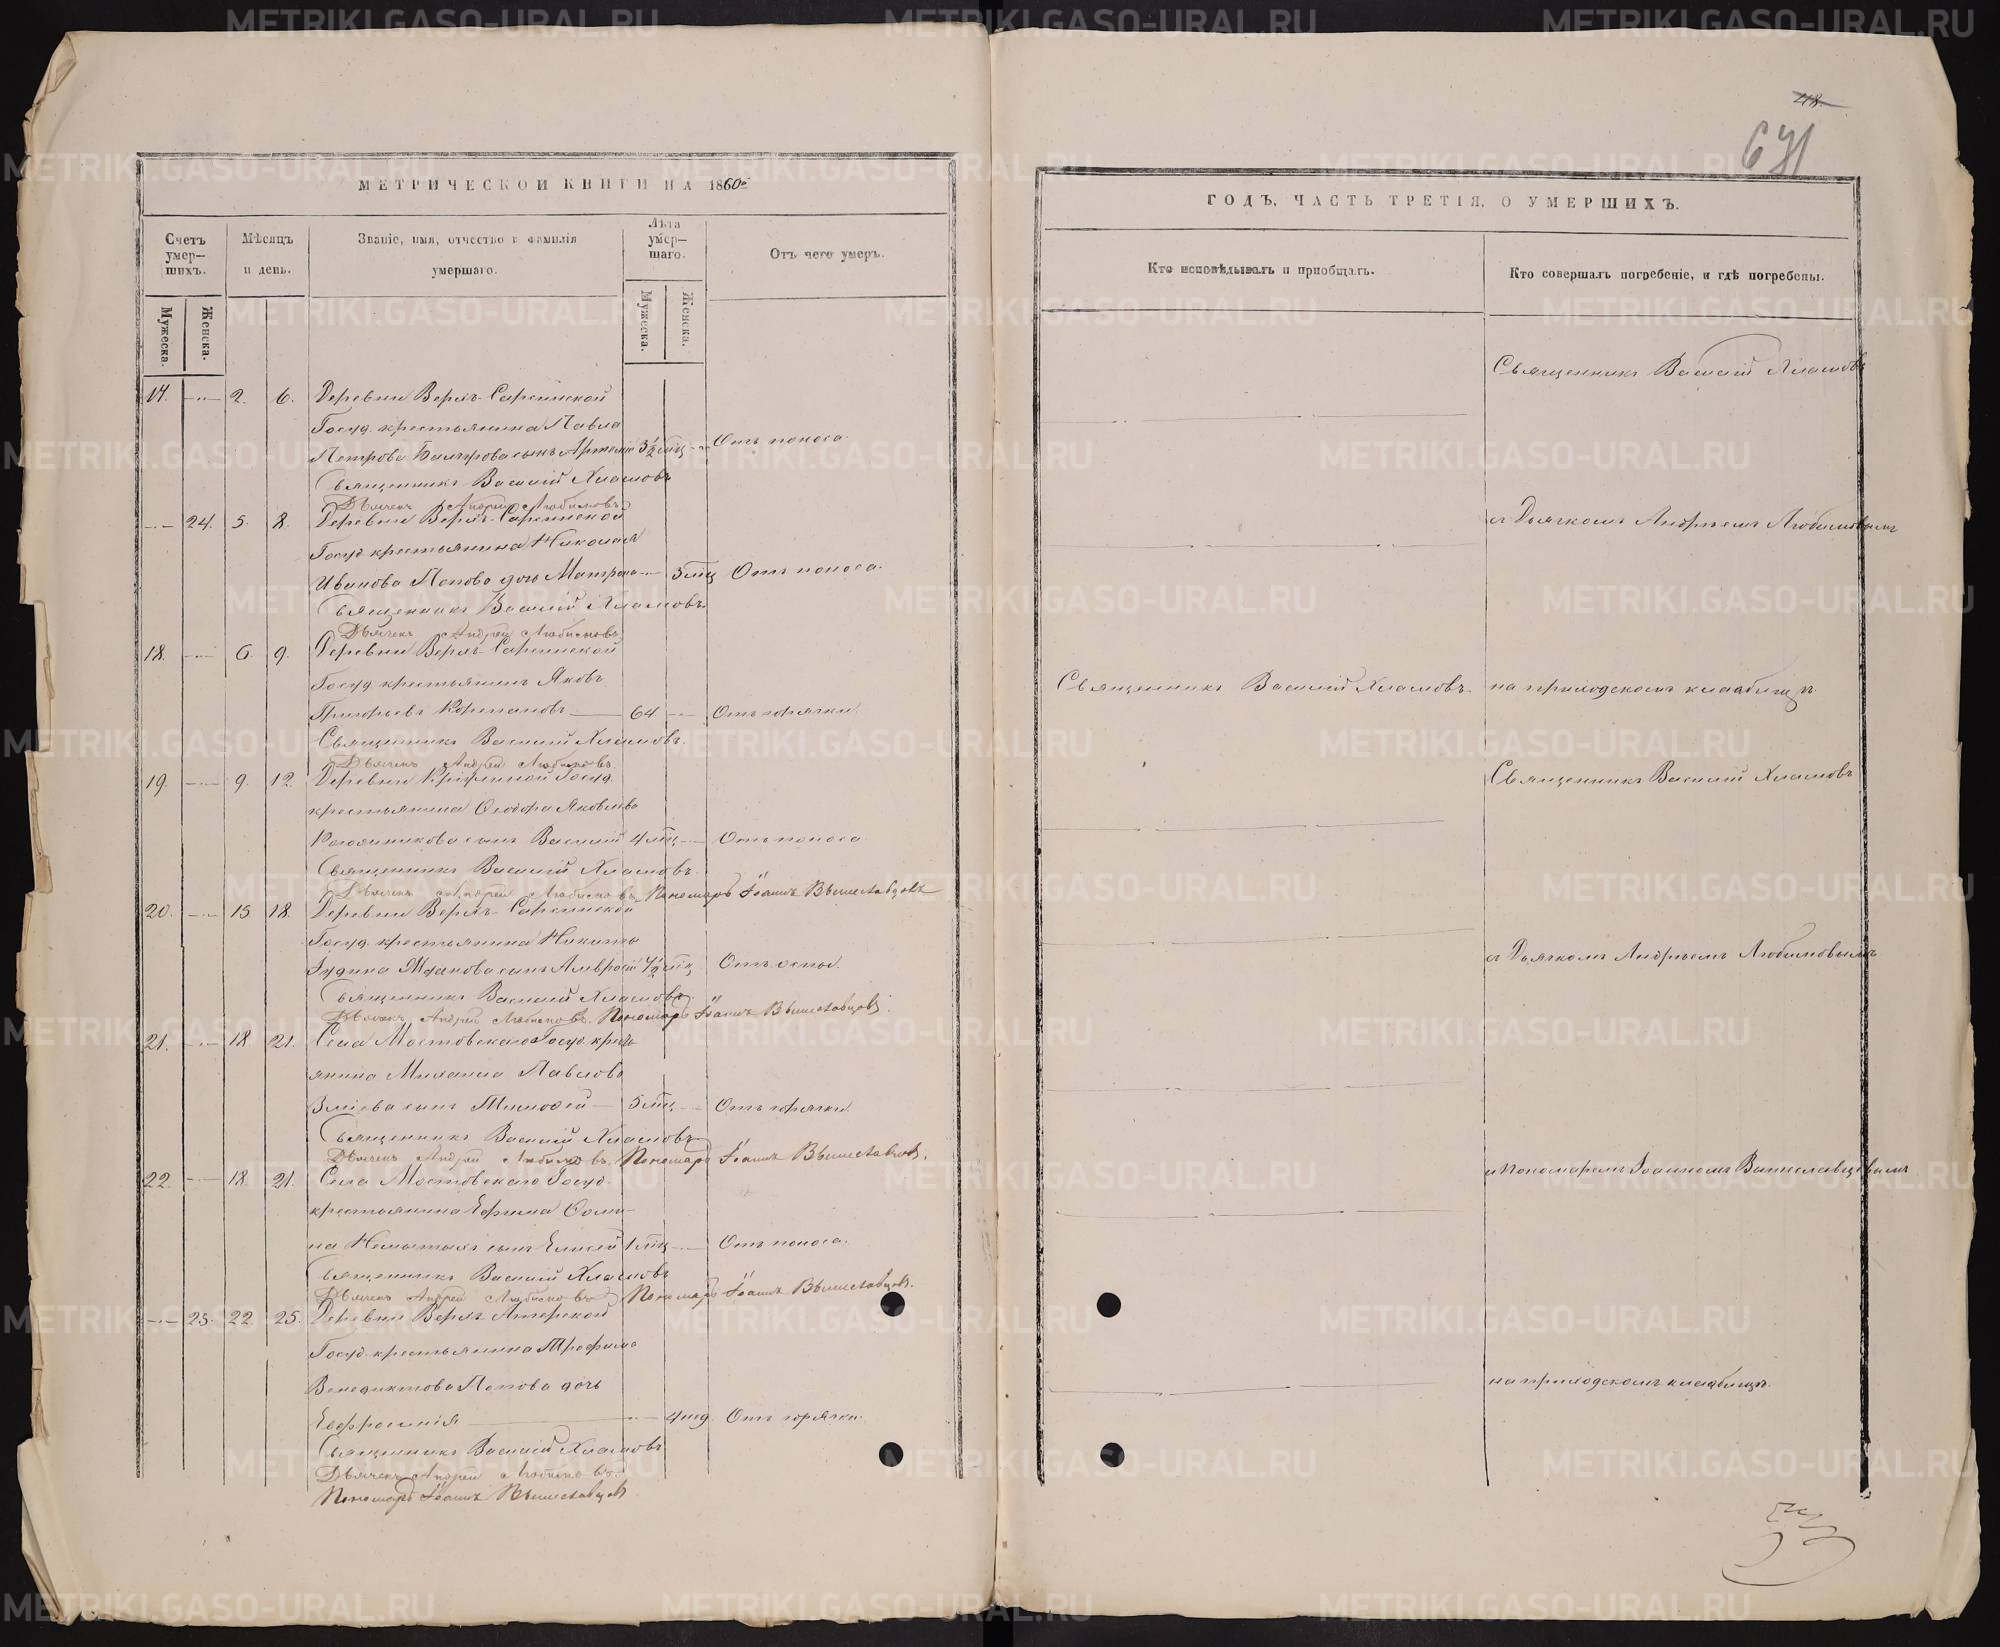 МЕТРИЧЕСКОЙ КНИГИ НА 1860й
Счетъ умер-шихъ.
Мѣсяцъ и день.
Званіе, имя, отчество и фамилія умершаго.
Лѣта умер-шаго.
Отъ чего умеръ.
Мужеска.
Женска.
Мужеска.
Женска.
2. 6. Деревни Верхъ-Саринской
Госуд. крестьянина Павла
Петрова сынъ 3½ мѣц Отъ поноса.
Священникъ Василій Хламовъ
Дьячекъ Андрей Любимовъ
24. 5. 8. Деревни Верхъ-Саринской
Госуд крестьянина Николая
Иванова Попова дочь Матрона 5 мѣц Отъ поноса.
Священникъ Василій Хламовъ
Дьячекъ Андрей Любимовъ
18. 6 9. Деревни Верхъ-Саринской
Госуд крестьянинъ Яковъ
Григорьевъ Корепановъ 64. Отъ горячки.
Священникъ Василій Хламовъ.
Дьячекъ Андрей Любимовъ.
19. 9. 12. Деревни Госуд.
крестьянина Ѳеодора Яковлева
сынъ Василій 4 мѣц Отъ поноса
Священникъ Василій Хламовъ.
Дьячекъ Андрей Любимовъ. Пономарь Іоаннъ Вышеславцовъ
20. 15 18. Деревни Верхъ-Саринской
Госуд. крестьянина Никиты
сынъ Амвросій ½ мѣц Отъ оспы.
Священникъ Василій Хламовъ.
Дьячекъ Андрей Любимовъ. Пономарь Іоаннъ Вышеславцовъ.
21. 18. 21. Села Мостовскаго Госуд. кресть
янина Михаила Павлова
Зміева сынъ Тимофей 5 мѣц. Отъ горячки.
Священникъ Василій Хламовъ
Дьячекъ Андрей Любимовъ. Пономарь Іоаннъ Вышеславцовъ.
22. 18. 21. Села Мостовскаго Госуд.
крестьянина Ефима Ѳоми-
на сынъ Елисей 1 мѣц Отъ поноса.
Священникъ Василій Хламовъ
Дьячекъ Андрей Любимовъ Пономарь Іоаннъ Вышеславцовъ.
25. 22 25. Деревни Верхъ-
Госуд. крестьянина Трофима
Венедиктова Попова дочь
Евфросинія Отъ горячки.
Священникъ Василій Хламовъ
Дьячекъ Андрей Любимовъ.
Пономарь Іоаннъ Вышеславцовъ
ГОДЪ, ЧАСТЬ ТРЕТІЯ, О УМЕРШИХЪ.
Кто исповѣдывалъ и пріобщалъ.
Кто совершалъ погребеніе, и гдѣ погребены.
Священникъ Василій Хламовъ
съ Дьячкомъ Андреемъ Любимовымъ
Священникъ Василій Хламовъ
на приходскомъ кладбищѣ.
Священникъ Василій Хламовъ
съ Дьячкомъ Андреемъ Любимовымъ
и Пономаремъ Іоанномъ Вышеславцовымъ
на приходскомъ кладбищѣ.
METRIKI.GASO-URAL.RU